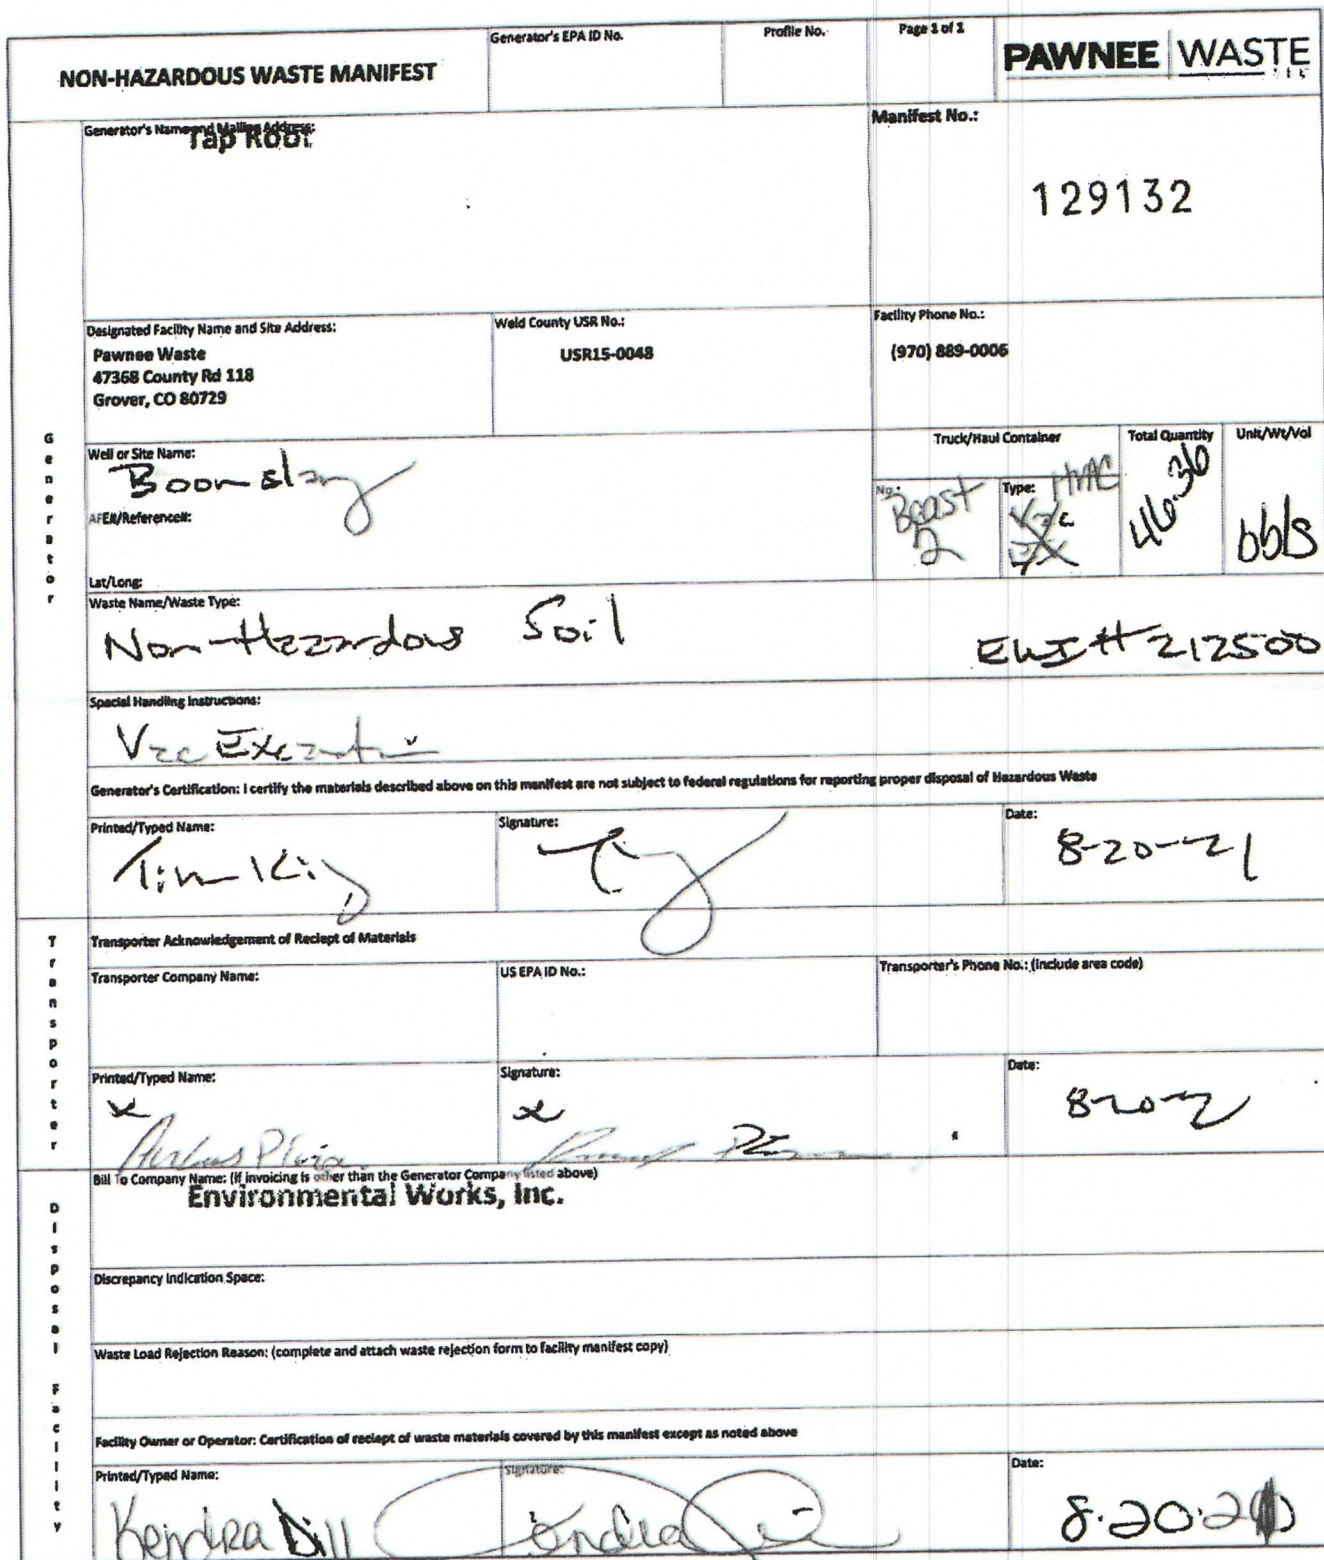 NON-HAZARDOUS WASTE MANIFEST
Generator's EPA ID No.
Profile No.
Page 1 of 1
PAWNEE WASTE LLC
Generator's Name and Mailing Address:
Tap Root
Manifest No.:
129132
Designated Facility Name and Site Address:
Pawnee Waste
47368 County Rd 118
Grover, CO 80729
Weld County USR No.:
USR15-0048
Facility Phone No.:
(970) 889-0006
Generator
Well or Site Name:
Boomslang
AFE#/Reference#:
Lat/Long:
Truck/Haul Container
No.:
Beast
2
Type:
Total Quantity
46.36
Unit/Wt/Vol
bbls
Waste Name/Waste Type:
Non-Hazardous Soil
EWI# 212500
Special Handling Instructions:
Vac Excavation
Generator's Certification: I certify the materials described above on this manifest are not subject to federal regulations for reporting proper disposal of Hazardous Waste
Printed/Typed Name:
Tim King
Signature:
Date:
8-20-21
Transporter
Transporter Acknowledgement of Reciept of Materials
Transporter Company Name:
US EPA ID No.:
Transporter's Phone No.: (include area code)
Printed/Typed Name:
x
Signature:
x
Date:
8-20-21
Disposal Facility
Bill To Company Name: (If invoicing is other than the Generator Company listed above)
Environmental Works, Inc.
Discrepancy Indication Space:
Waste Load Rejection Reason: (complete and attach waste rejection form to facility manifest copy)
Facility Owner or Operator: Certification of reciept of waste materials covered by this manifest except as noted above
Printed/Typed Name:
Kendra Dill
Signature:
Date:
8.20.21